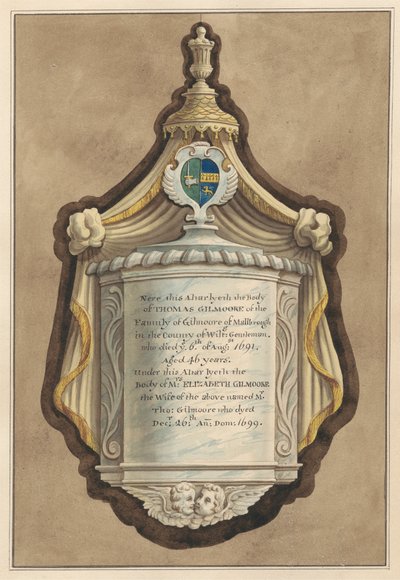 Nere this Altar lyeth the Body
of THOMAS GILMOORE of the
Family of Gilmoore of Mallbrough
in the County of Wilts: Gentleman,
who died yͤ 6th of Augst 1691,
Aged 46 years.
Under this Altar lyeth the
Body of Mrs ELIZABETH GILMOORE
the Wife of the above named Mr
Tho: Gilmoore who dyed
Decr: 26th An: Dom: 1699.